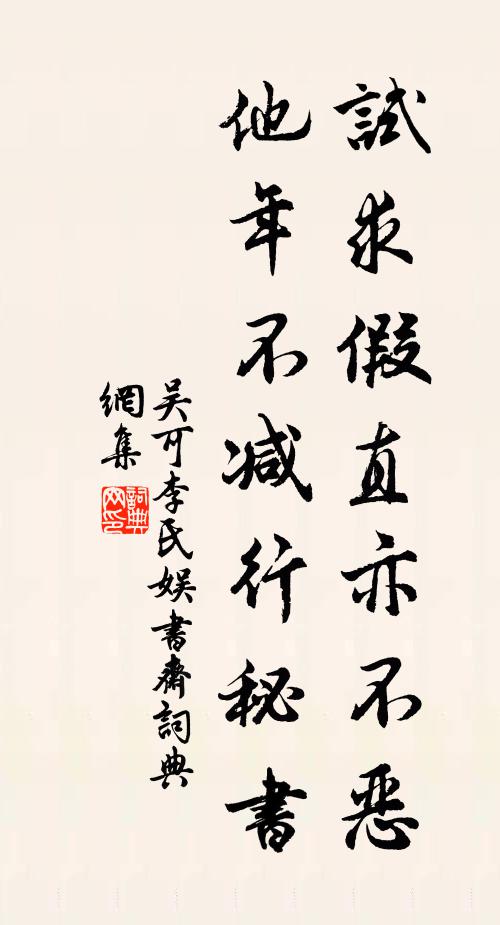 試求假直亦不惡
他年不減行秘書
吴可李氏娱書齋詞典
網集
詞典
网印